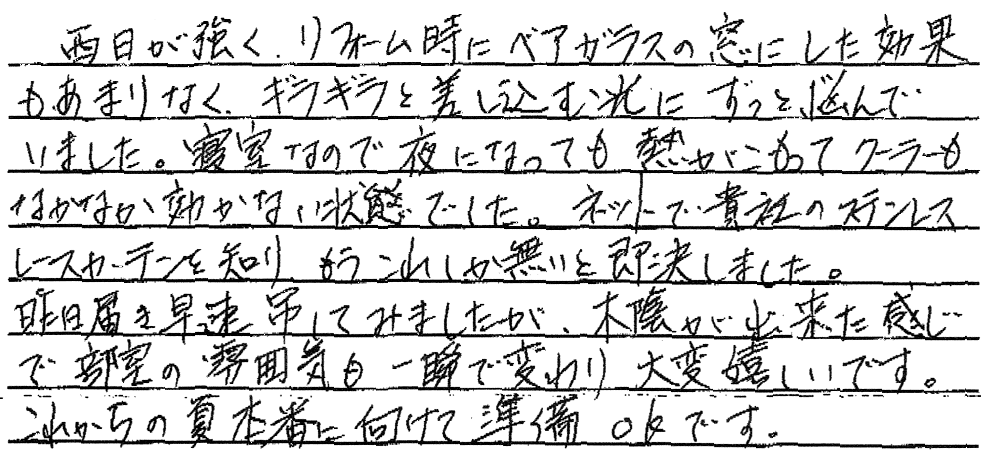 西日が強く、リフォーム時にペアガラスの窓にした効果
もあまりなく、ギラギラと差し込む光にずっと悩んで
いました。寝室なので夜になっても熱がこもってクーラーも
なかなか効かない状態でした。ネットで貴社のステンレス
レースカーテンを知り、もうこれしか無いと即決しました。
昨日届き早速吊してみましたが、木陰が出来た感じ
で部屋の雰囲気も一瞬で変わり大変嬉しいです。
これからの夏本番に向けて準備OKです。